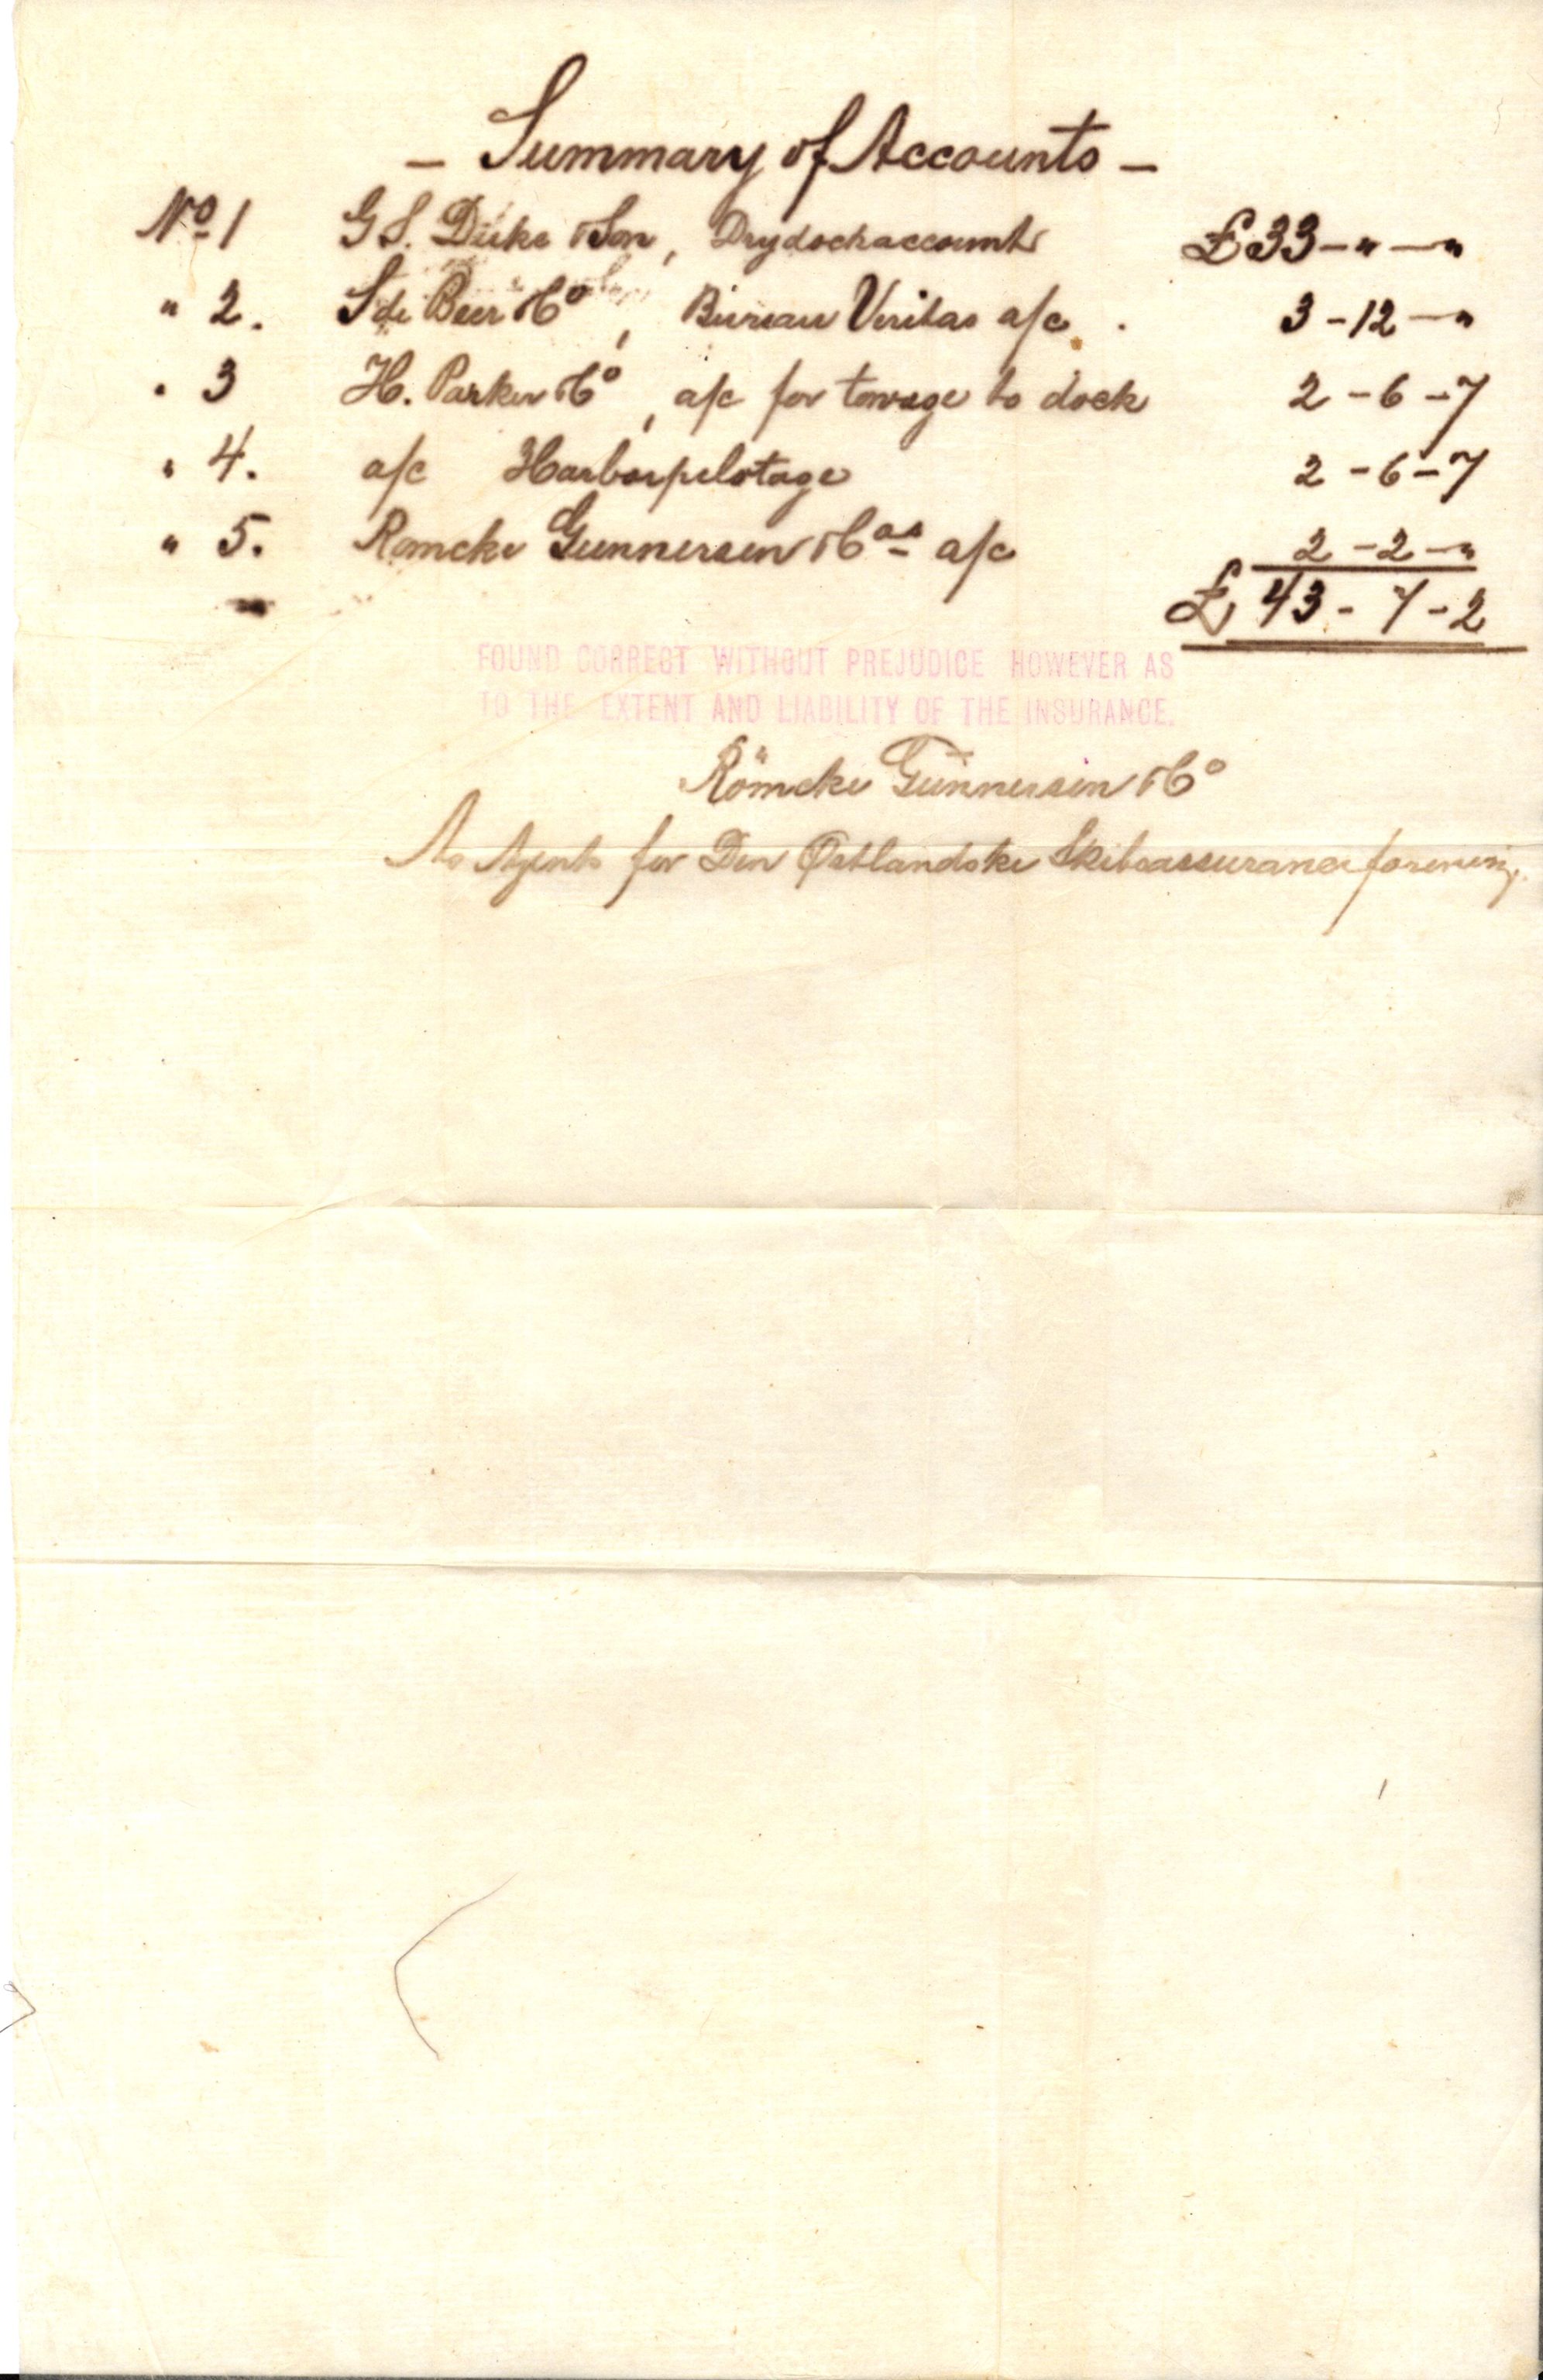 – Summary of Accounts –
No 1 G S. Duke & Son, Drydockaccount £ 33 – " – "
" 2. S de Beer & Co, Bureau Veritas a/c . 3 – 12 – "
" 3 H. Parker & Co, a/c for towage to dock 2 – 6 – 7
" 4. a/c Harborpilotage 2 – 6 – 7
" 5. Römcke Gunnersen & Cos a/c 2 – 2 – "
£ 43 – 7 – 2
FOUND CORRECT WITHOUT PREJUDICE HOWEVER AS
TO THE EXTENT AND LIABILITY OF THE INSURANCE.
Römcke Gunnersen & Co
As Agents for Den Østlandske Skibsassuranceforening.